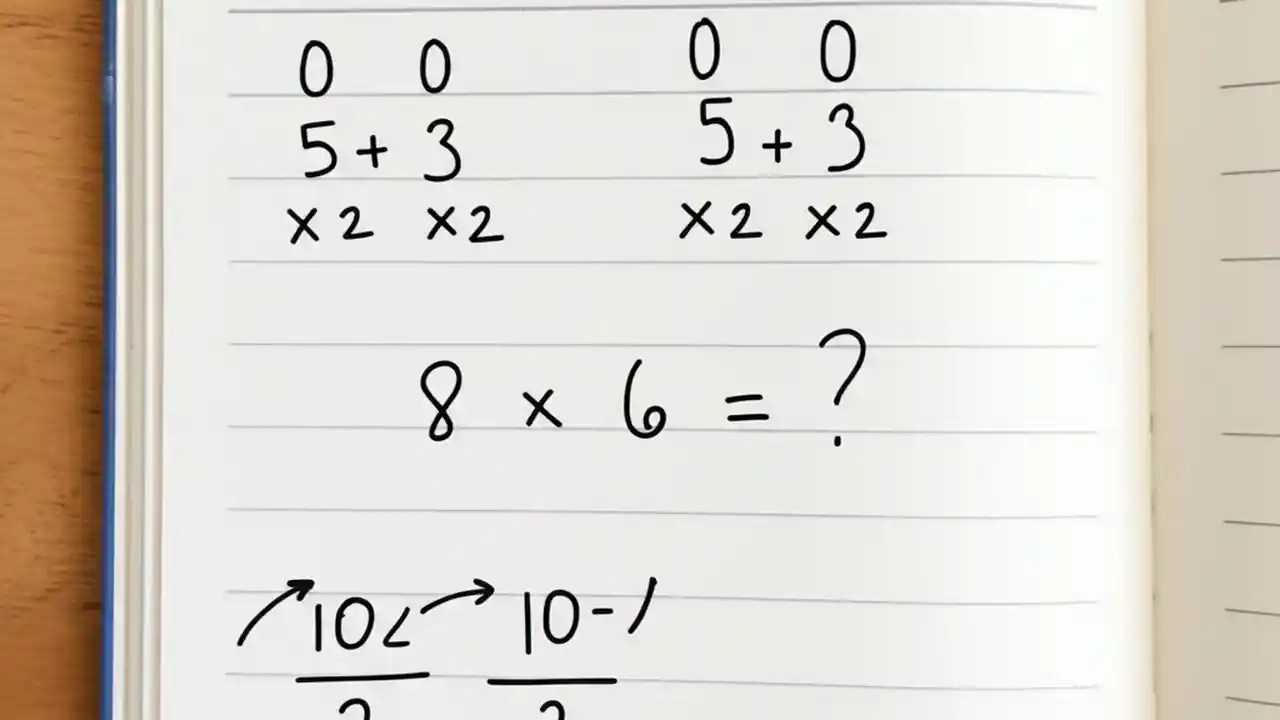 0 0 0 0
5 + 3 5 + 3
×2 ×2 ×2 ×2
8 × 6 = ?
10 10-